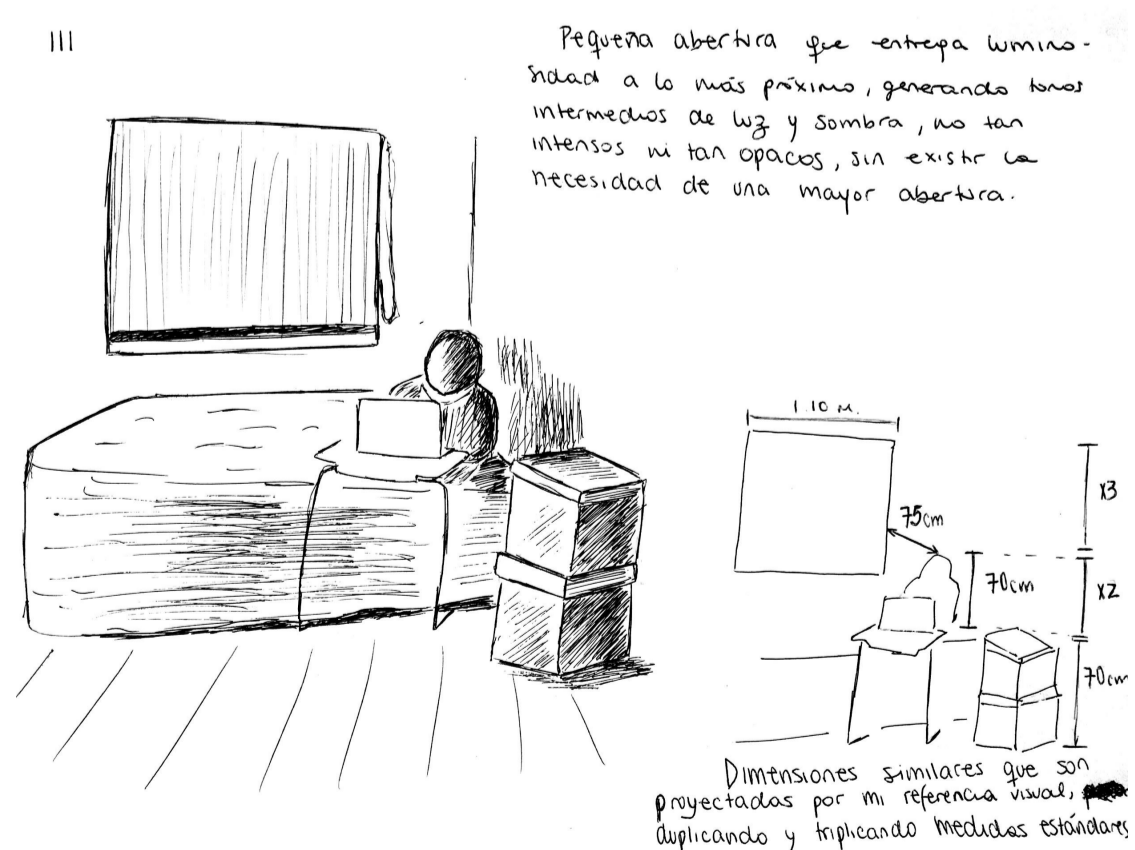 III
Pequeña abertura que entrega lumino-
sidad a lo más próximo, generando tonos
intermedios de luz y sombra, no tan
intensos ni tan opacos, sin existir la
necesidad de una mayor abertura.
1.10 M.
75cm
70cm
x3
x2
70cm
Dimensiones similares que son
proyectadas por mi referencia visual,
duplicando y triplicando medidas estándares